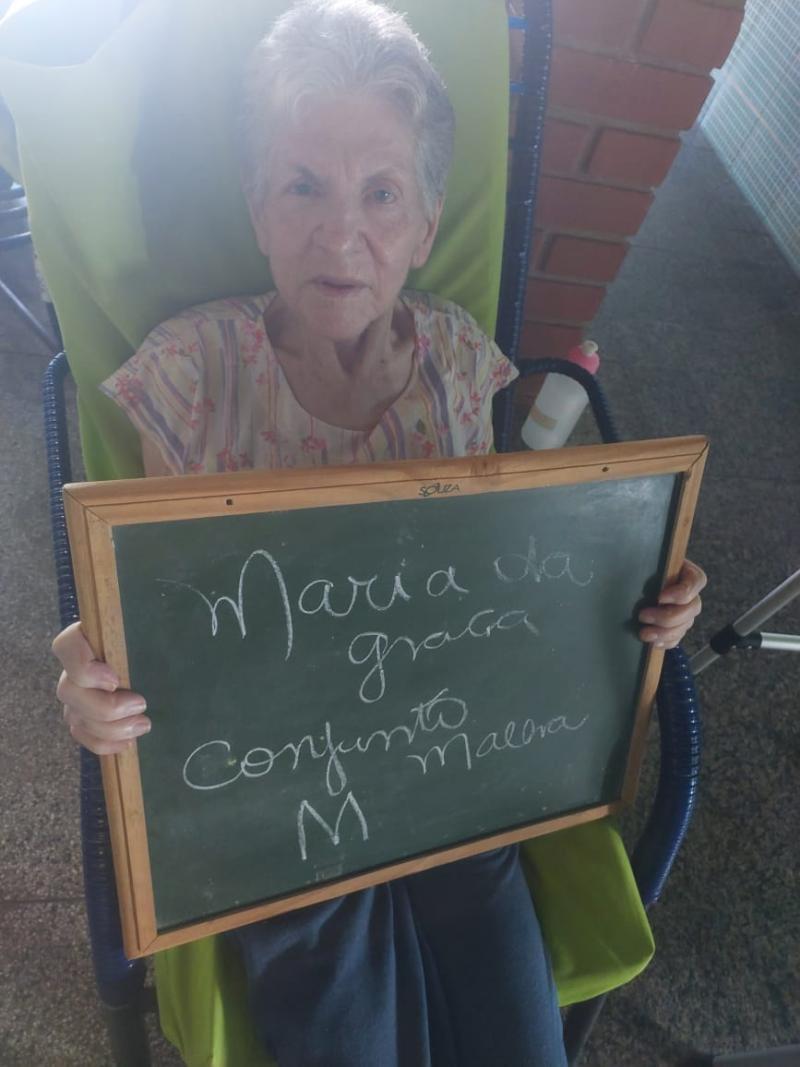 SOUZA
Maria da
graca
Conjunto
Malena
M